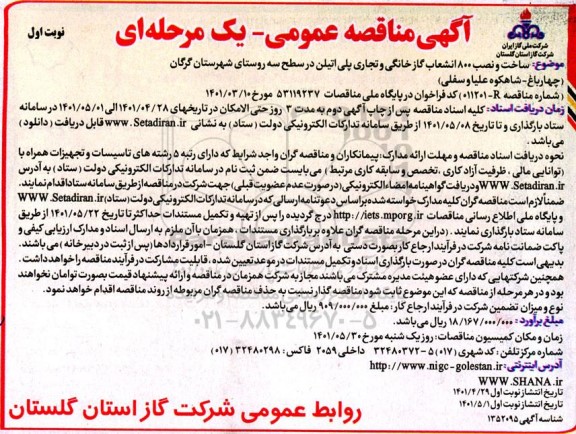 آگهی مناقصه عمومی- یک مرحله‌ای
نوبت اول
شرکت ملی گاز ایران
شرکت گاز استان گلستان
موضوع: ساخت و نصب ۸۰۰ انشعاب گاز خانگی و تجاری پلی اتیلن در سطح سه روستای شهرستان گرگان
(چهارباغ-شاهکوه علیا و سفلی)
(شماره مناقصه R-۰۱۱۲۰۱ کد فراخوان در پایگاه ملی مناقصات ۵۳۱۱۹۲۳۷ مورخ ۱۴۰۱/۰۳/۱۰
زمان دریافت اسناد: کلیه اسناد مناقصه پس از چاپ آگهی دوم به مدت ۳ روز حتی الامکان در تاریخهای ۱۴۰۱/۰۴/۲۸ الی ۱۴۰۱/۰۵/۰۱ در سامانه
ستاد بارگذاری و تا تاریخ ۱۴۰۱/۰۵/۰۸ از طریق سامانه تدارکات الکترونیکی دولت (ستاد) به نشانی www.Setadiran.ir قابل دریافت (دانلود)
می باشد.
نحوه دریافت اسناد مناقصه و مهلت ارائه مدارک: پیمانکاران و مناقصه گران واجد شرایط که دارای رتبه ۵ رشته های تاسیسات و تجهیزات همراه با
(توانایی مالی، ظرفیت آزاد کاری، تخصص و سابقه کاری مرتبط) می بایست ضمن ثبت نام در سامانه تدارکات الکترونیکی دولت (ستاد) به آدرس
WWW.Setadiran.ir و دریافت گواهینامه امضاء الکترونیکی (در صورت عدم عضویت قبلی) جهت شرکت در مناقصه از طریق سامانه ستاد اقدام نمایند.
ضمناً لازم است مناقصه گران کلیه مدارک خواسته شده بر اساس دعوتنامه ارسالی که در سامانه تدارکات الکترونیکی دولت (ستاد) WWW.Setadiran.ir
و پایگاه ملی اطلاع رسانی مناقصات http://iets.mporg.ir درج گردیده را پس از تهیه و تکمیل مستندات حداکثر تا تاریخ ۱۴۰۱/۰۵/۲۲ از طریق
سامانه ستاد بارگذاری نمایند. (در این مرحله مناقصه گران علاوه بر بارگذاری مستندات، همزمان با آن ملزم به ارسال اسناد و مدارک ارزیابی کیفی و
پاکت ضمانت نامه شرکت در فرآیند ارجاع کار بصورت دستی به آدرس شرکت گاز استان گلستان -امور قراردادها (پس از ثبت در دبیرخانه) می باشند.
بدیهی است کلیه مناقصه گران در صورت بارگذاری اسناد و تکمیل مستندات در موعد تعیین شده، قابلیت مشارکت در فرآیند مناقصه را خواهد داشت.
همچنین شرکتهایی که دارای عضو هیئت مدیره مشترک می باشند مجاز به شرکت همزمان در مناقصه و ارائه پیشنهاد قیمت بصورت توامان نخواهند
بود و در هر مرحله از مناقصه که این موضوع ثابت شود مناقصه گذار نسبت به حذف مناقصه گران مربوطه از روند مناقصه اقدام خواهد نمود.
نوع و میزان تضمین شرکت در فرآیند ارجاع کار: مبلغ ۹۰۹/۰۰۰/۰۰۰ ریال می باشد.
مبلغ برآورد: ۱۸/۱۶۷/۰۰۰/۰۰۰ ریال می باشد.
زمان و مکان کمیسیون مناقصات: روز یک شنبه مورخ ۱۴۰۱/۰۵/۳۰
شماره مرکز تلفن: کد شهری (۰۱۷) ۵-۳۲۴۸۰۳۷۲ داخلی ۲۰۵۹ فاکس: ۳۲۴۸۰۲۹۸ (۰۱۷)
آدرس اینترنتی: http://www.nigc-golestan.ir
WWW.SHANA.ir
تاریخ انتشار نوبت اول ۱۴۰۱/۴/۲۹
تاریخ انتشار نوبت اول ۱۴۰۱/۵/۱
شناسه آگهی ۱۳۵۲۰۹۵
روابط عمومی شرکت گاز استان گلستان
۰۲۱-۸۸۳۴۹۶۷۰-۵